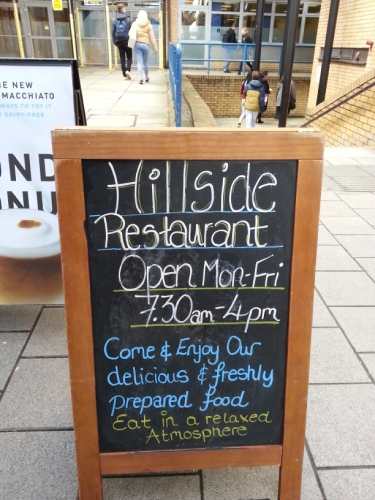 HE NEW
MACCHIATO
WAYS TO TRY IT
DAIRY-FREE
OND
Hillside
Restaurant
Open Mon-Fri
7.30am-4pm
Come & Enjoy Our
delicious & freshly
prepared food
Eat in a relaxed
Atmosphere